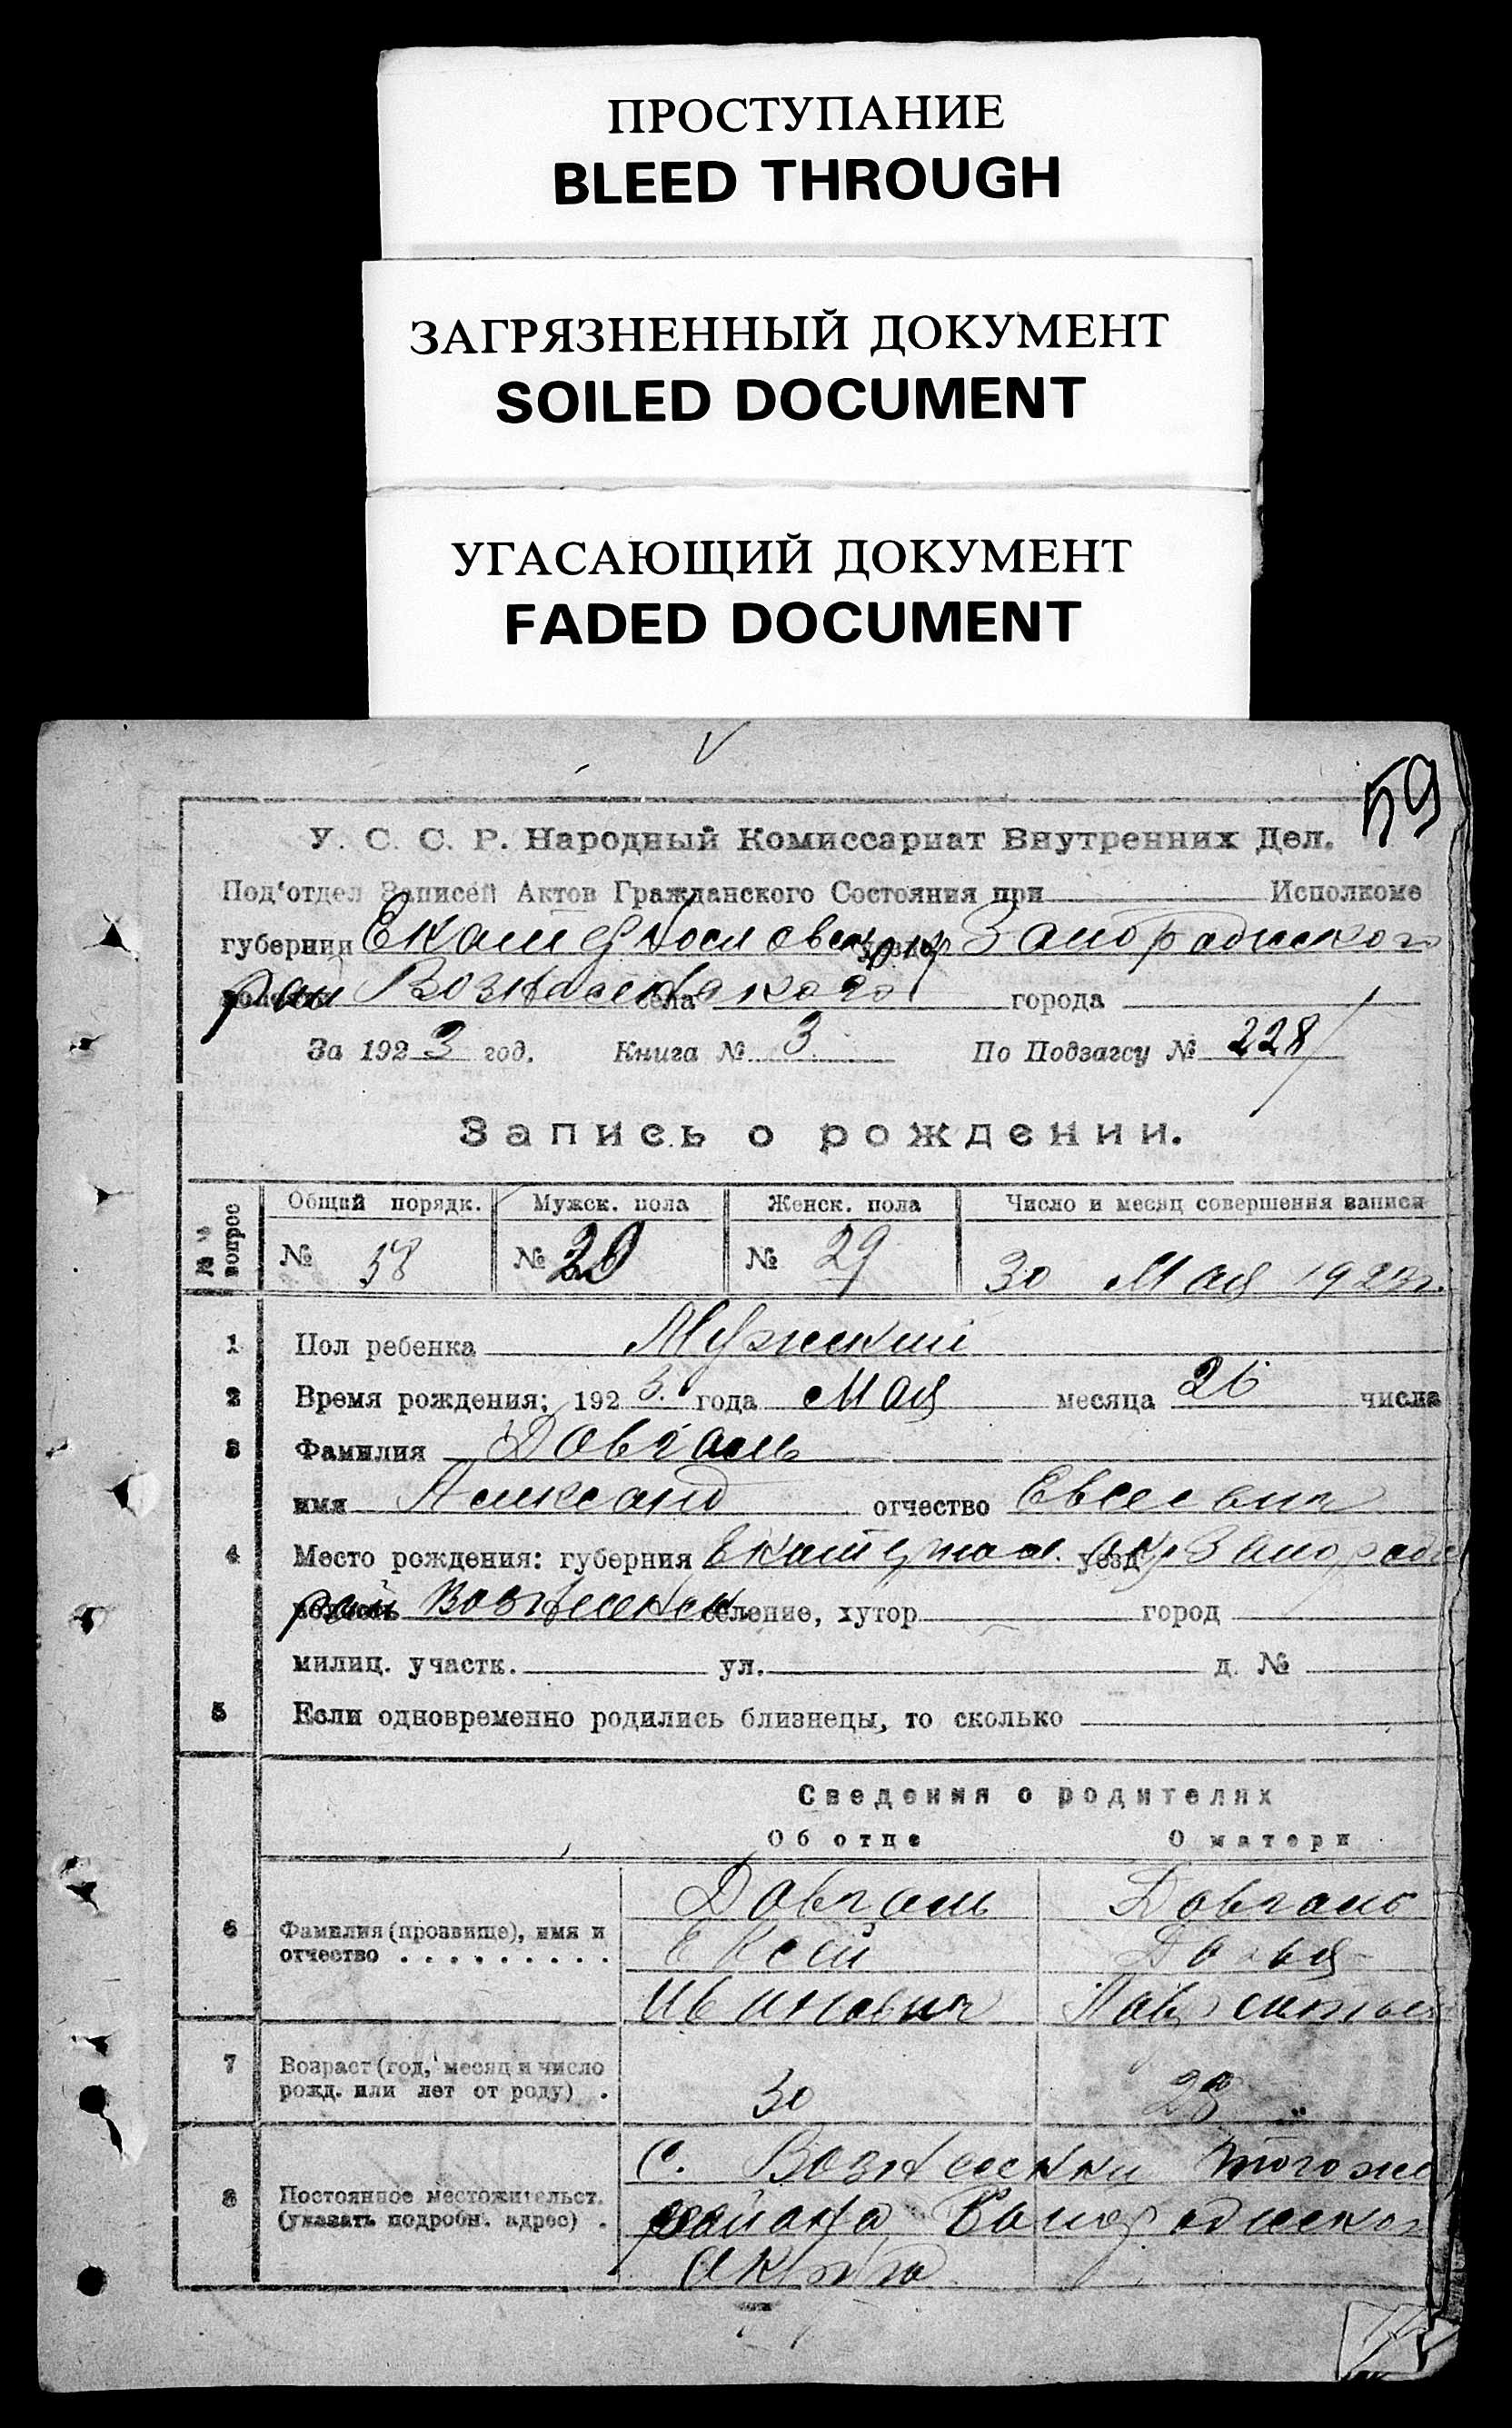 ПРОСТУПАНИЕ
BLEED THROUGH
ЗАГРЯЗНЕННЫЙ ДОКУМЕНТ
SOILED DOCUMENT
УГАСАЮЩИЙ ДОКУМЕНТ
FADED DOCUMENT
59
У. С. С. Р. Народный Комиссариат Внутренних Дел.
Под'отдел Записей Актов Гражданского Состояния при Исполкоме
губернии Екатеринославской окр Запорожского
рай Вознесенского села города
За 1923 год. Книга № 3 По Подзагсу № 228
Запись о рождении.
№№ вопрос Общий порядк. Мужск. пола Женск. пола Число и месяц совершения записи
№ 58 № 29 № 29 30 Мая 1923 г.
1 Пол ребенка Мужский
2 Время рождения: 1923. года Мая месяца 26 числа
3 Фамилия Довгаль
имя Александ отчество Евсеевич
4 Место рождения: губерния уезд окр
рай Вознесенск селение, хутор город
милиц. участк. ул. д. №
5 Если одновременно родились близнецы, то сколько
Сведения о родителях
Об отце О матери
6 Фамилия (прозвище), имя и отчество Довгаль Довгаль
Евсей Дарья
Иванович
7 Возраст (год, месяц и число рожд. или лет от роду) . 30 28
8 Постоянное местожительст. (указать подробн. адрес) . С. Вознесенки того же
района Запорожского
округа